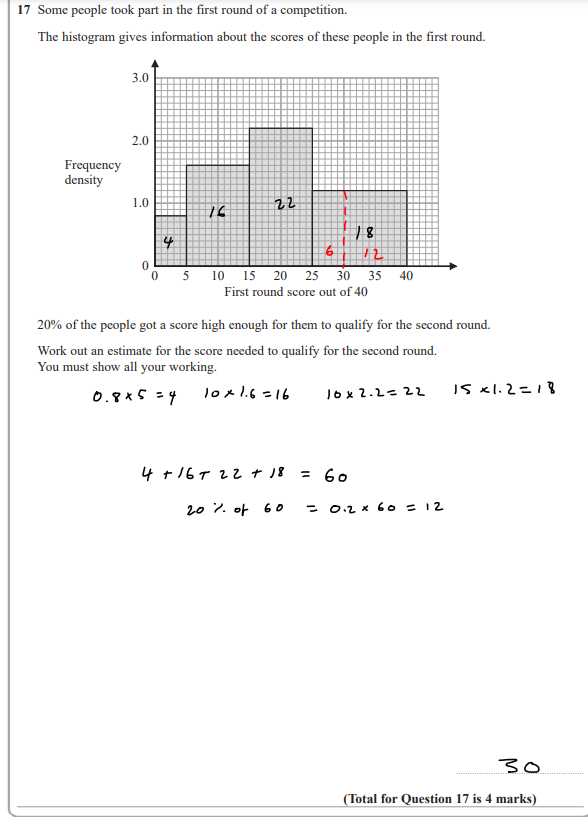 17 Some people took part in the first round of a competition.
The histogram gives information about the scores of these people in the first round.
3.0
2.0
Frequency
density
1.0
0
4
16
22
18
6
12
0 5 10 15 20 25 30 35 40
First round score out of 40
20% of the people got a score high enough for them to qualify for the second round.
Work out an estimate for the score needed to qualify for the second round.
You must show all your working.
0.8 x 5 = 4 10 x 1.6 = 16 10 x 2.2 = 22 15 x 1.2 = 18
4 + 16 + 22 + 18 = 60
20 % of 60 = 0.2 x 60 = 12
30
(Total for Question 17 is 4 marks)